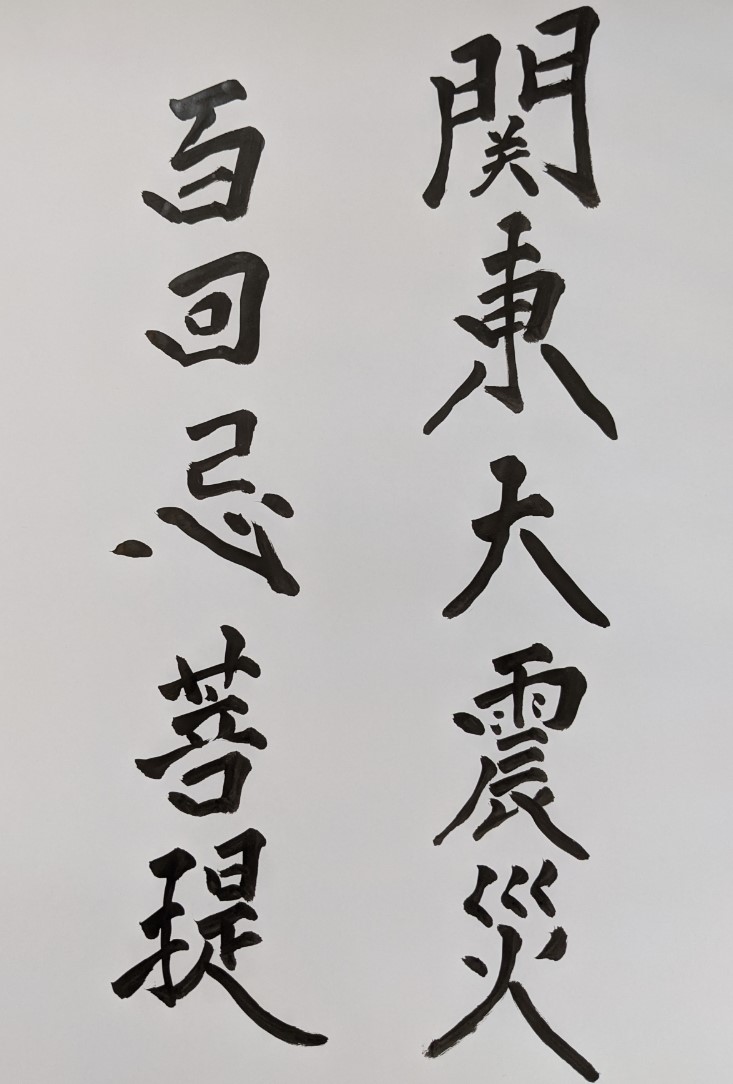 関東大震災
百回忌菩提